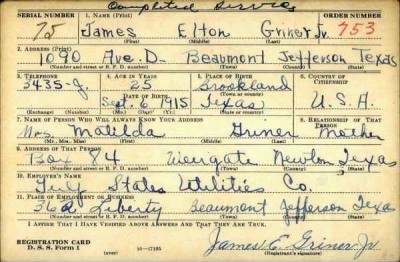 Completed Service
SERIAL NUMBER 1. NAME (Print) ORDER NUMBER
75 James Elton Griner Jr. 753
(First) (Middle) (Last)
2. ADDRESS (Print)
1090 Ave. D. Beaumont Jefferson Texas
(Number and street or R. F. D. number) (Town) (County) (State)
3. TELEPHONE 4. AGE IN YEARS 5. PLACE OF BIRTH 6. COUNTRY OF CITIZENSHIP
3435-J. 25 Brookland
DATE OF BIRTH (Town or county)
Sept. 6 1915 Texas U.S.A.
(Exchange) (Number) (Mo.) (Day) (Yr.) (State or country)
7. NAME OF PERSON WHO WILL ALWAYS KNOW YOUR ADDRESS 8. RELATIONSHIP OF THAT PERSON
Mrs. Matilda Griner Mother
(Mr., Mrs., Miss) (First) (Middle) (Last)
9. ADDRESS OF THAT PERSON
Box 84 Wiergate Newton Texas
(Number and street or R. F. D. number) (Town) (County) (State)
10. EMPLOYER'S NAME
Gulf States Utilities Co.
11. PLACE OF EMPLOYMENT OR BUSINESS
Liberty Beaumont Jefferson Texas
(Number and street or R. F. D. number) (Town) (County) (State)
I AFFIRM THAT I HAVE VERIFIED ABOVE ANSWERS AND THAT THEY ARE TRUE.
REGISTRATION CARD
D. S. S. Form 1 (over) 16—17105
James E. Griner Jr
(Registrant's signature)